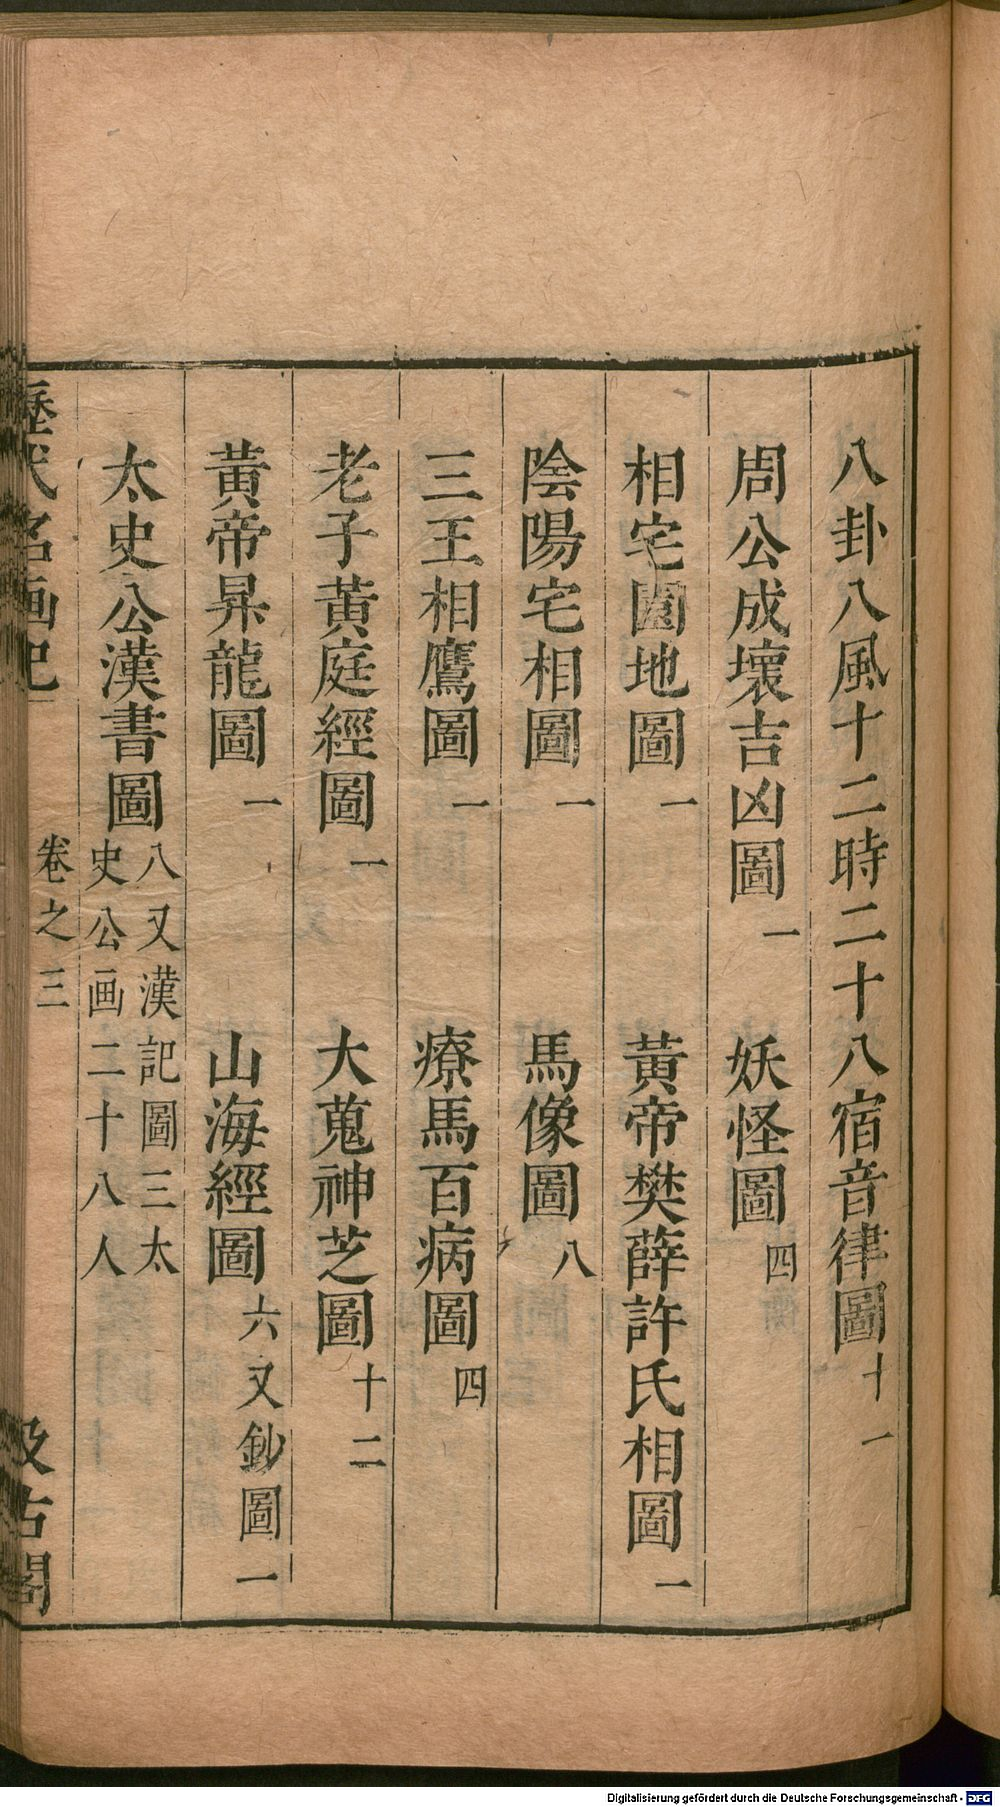 八卦八風十二時二十八宿音律圖十一
周公成壞吉凶圖一　妖怪圖四
相宅園地圖一　黃帝樊薛許氏相圖一
陰陽宅相圖一　馬像圖八
三王相鷹圖一　療馬百病圖四
老子黃庭經圖一　大蒐神芝圖十二
黃帝昇龍圖一　山海經圖六又鈔圖一
太史公漢書圖八又漢記圖三太
史公画二十八人
歷代名画記　卷之三　汲古閣
Digitalisierung gefördert durch die Deutsche Forschungsgemeinschaft - DFG